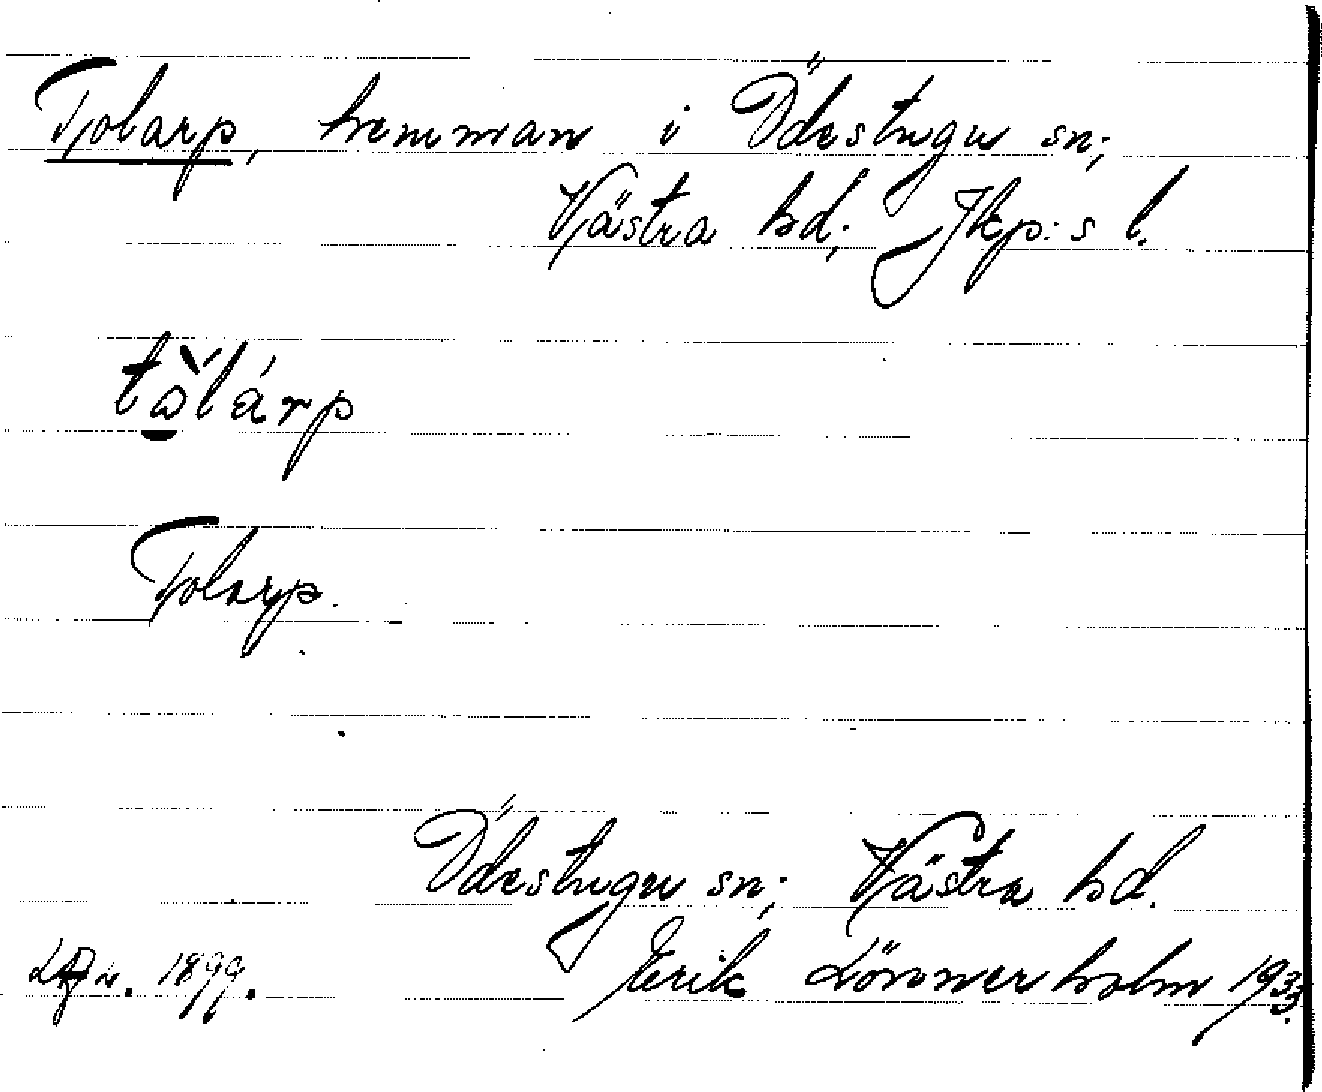 Tolarp, hemman i Ödestugu sn;
Västra hd; Jkp:s l.
Tolarp.
Ödestugu sn; Västra hd.
1899. Erik Lönnerholm 1933.